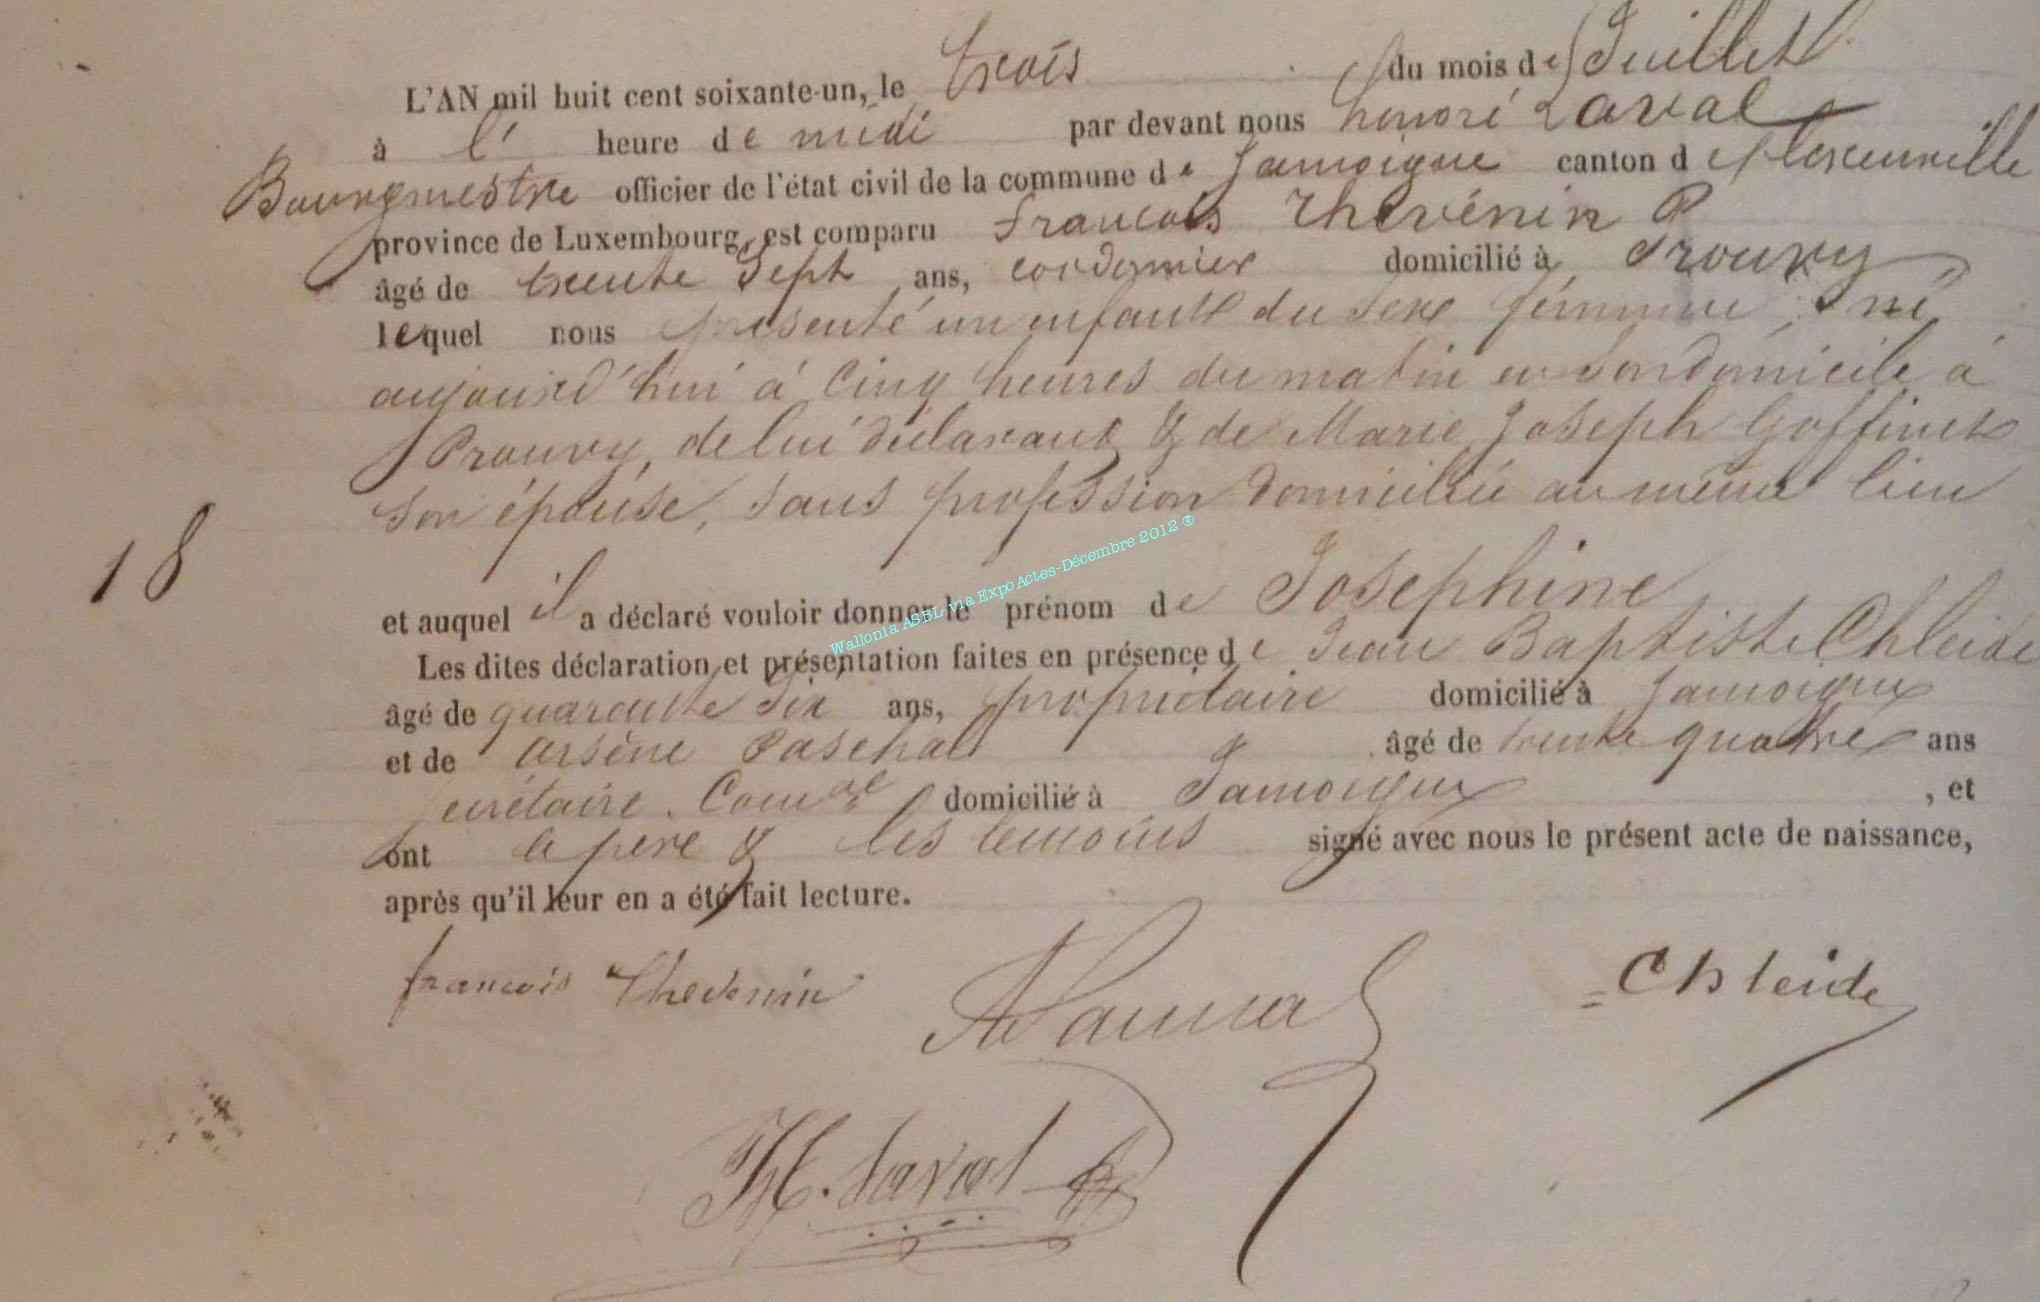 L'AN mil huit cent soixante-un, le trois du mois de Juillet
à l' heure de midi par devant nous honoré Laval
Bourgmestre officier de l'état civil de la commune de Jamoigne canton d
province de Luxembourg, est comparu francois Thevénin
âgé de trente Sept ans, cordonnier domicilié à Prouvy
lequel nous présenté un enfant du Sexe féminin, né
aujourd'hui à Cinq heures du matin en son domicile à
Prouvy, de lui déclarant & de Marie Joseph Goffinet
son épouse, sans profession domiciliée au même lieu
18
et auquel il a déclaré vouloir donner le prénom de Josephine
Les dites déclaration et présentation faites en présence de Jean Baptiste Chleide
âgé de quarante Six ans, propriétaire domicilié à Jamoigne
et de arsène Paschal âgé de trente quatre ans
secrétaire Comal domicilié à Jamoigne , et
ont le pere & les temoins signé avec nous le présent acte de naissance,
après qu'il leur en a été fait lecture.
francois Thevenin Chleide
H. Laval
Wallonia ASBL via Expo Actes-Décembre 2012 ®